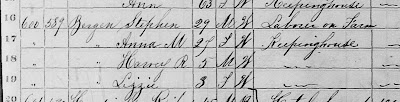 Ann 63 F W Keepinghouse
16 600 589 Bergen Stephen 29 M W Laborer on Farm
17 " Anna M 27 F W Keepinghouse
18 " Harvey R 5 M W
19 " Lizzie 3 F W
20